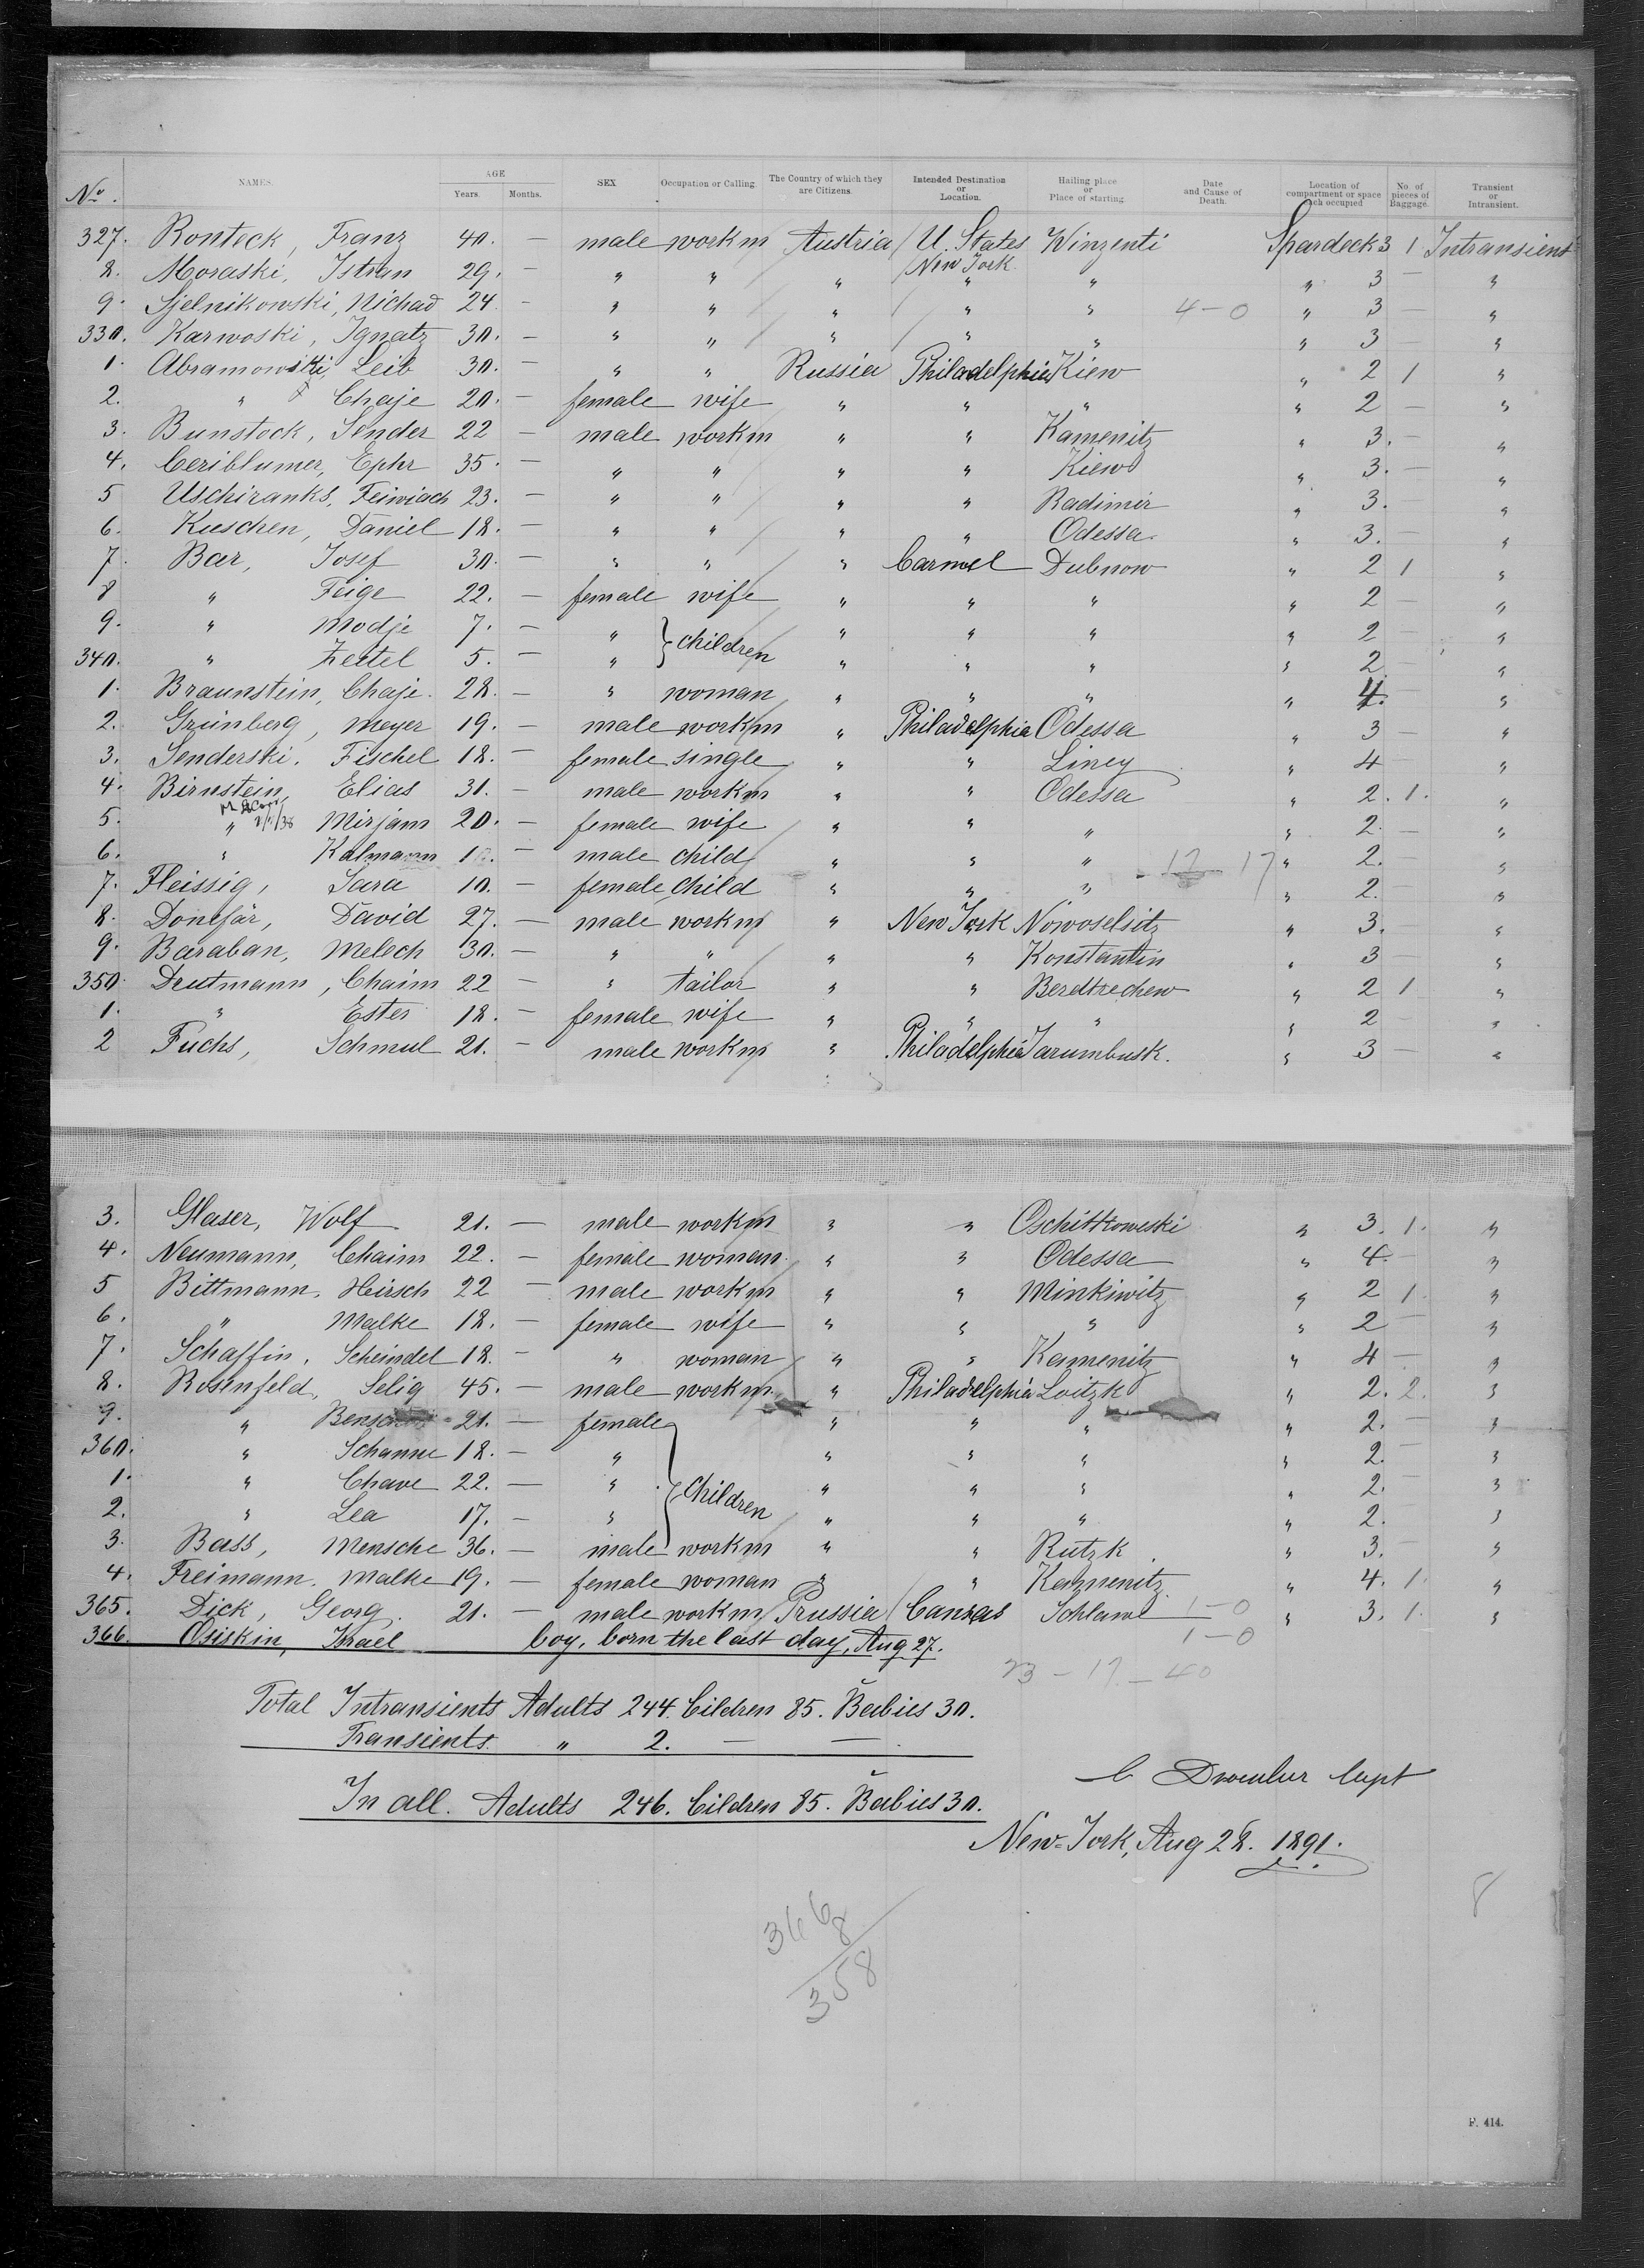 No. NAMES. AGE Years. Months. SEX Occupation or Calling. The Country of which they are Citizens. Intended Destination or Location. Hailing place or Place of starting. Date and Cause of Death. Location of compartment or space each occupied No. of pieces of Baggage. Transient or Intransient.
327. Ronteck, Franz 40. — male workm Austria U. States Winzenti Spardeck 3 1 Intransient
New York
8. Moraski, Istvan 29. — " " " " " " 3 — "
9. Sjelnikowski, Michad 24 - " " " " " 4-0 " 3 — "
330. Karwoski, Ignatz 30. — " " " " " " 3 — "
1. Abramowitti, Leib 30. " " Russia Philadelphia Kiew " 2 1 "
2. " Chaje 20. — female wife " " " " 2 — "
3. Bunstock, Sender 22 — male workm " " Kamenitz " 3. — "
4. Ceriblumer, Ephr 35. — " " " " Kiew " 3. — "
5 Uschiranks, Feiwiach 23. — " " " " Radimir " 3. "
6. Kuschen, Daniel 18. — " " " " Odessa. " 3. — "
7. Bar, Josef 30. — " " " Carmel Dubnow " 2 1 "
8 " Feige 22. — female wife " " " " 2 — "
9. " Modje 7. — " } children " " " " 2 "
340. " Zeitel 5. — " " " " " 2 — "
1. Braunstein, Chaje. 28. — " woman " " " " 4. — "
2. Grünberg, Meyer 19. — male workm " Philadelphia Odessa " 3 — "
3. Senderski, Fischel 18. — female single " " Liney " 4 — "
4. Birnstein, Elias 31. — male workm " " Odessa " 2. 1. "
5. " Mirjam 20. — female wife " " " " 2. — "
6. " Kalmann — male child " " " 17 17 " 2. — "
7. Fleissig, Sara 10. — female child " " " " 2. — "
8. Donefär, David 27. — male workm " New York Nowoselsitz " 3. "
9. Baraban, Melech 30. — " " " " Konstantin " 3 — "
350. Drutmann, Chaim 22 — " tailor " " Berdtrechew " 2 1 "
1. " Ester 18. — female wife " " " " 2 — "
2 Fuchs, Schmul 21. — male workm " Philadelphia Tarumbusk. " 3 — "
3. Glaser, Wolf 21. — male workm " " Oschitkoweski " 3. 1. "
4. Neumann, Chaim 22. — female woman. " " Odessa " 4. — "
5 Bittmann, Heirsch 22 — male workm " " Minkiwitz " 2 1. "
6. " Malke 18. — female wife " " " " 2 — "
7. Schaffin, Scheindel 18. — " woman " " Kamenitz " 4 — "
8. Rosenfeld, Selig 45. — male workm " Philadelphia Loitzk " 2. 2. "
9. " 21. — female " " " " 2. — "
360. " Schanne 18. — " " " " " 2. — "
1. " Chave 22. — " } Children " " " " 2. — "
2. " Lea 17. — " " " " " 2. "
3. Bass, Mensche 36. — male workm " " Rutzk " 3. — "
4. Freimann, Malke 19. — female woman " " Kamenitz " 4. 1. "
365. Dick, Georg. 21. — male workm Prussia Cansas Schlawe 1-0 " 3. 1. "
366. Osiskin, Israel boy, born the last day, Aug 27. 1-0
23 - 17 - 40
Total Intransients Adults 244. Cildren 85. Babies 30.
Transients. " 2. — —
In all. Adults 246. Cildren 85. Babies 30.
Capt
New-York, Aug 28. 1891.
366
8
358
8
F. 414.